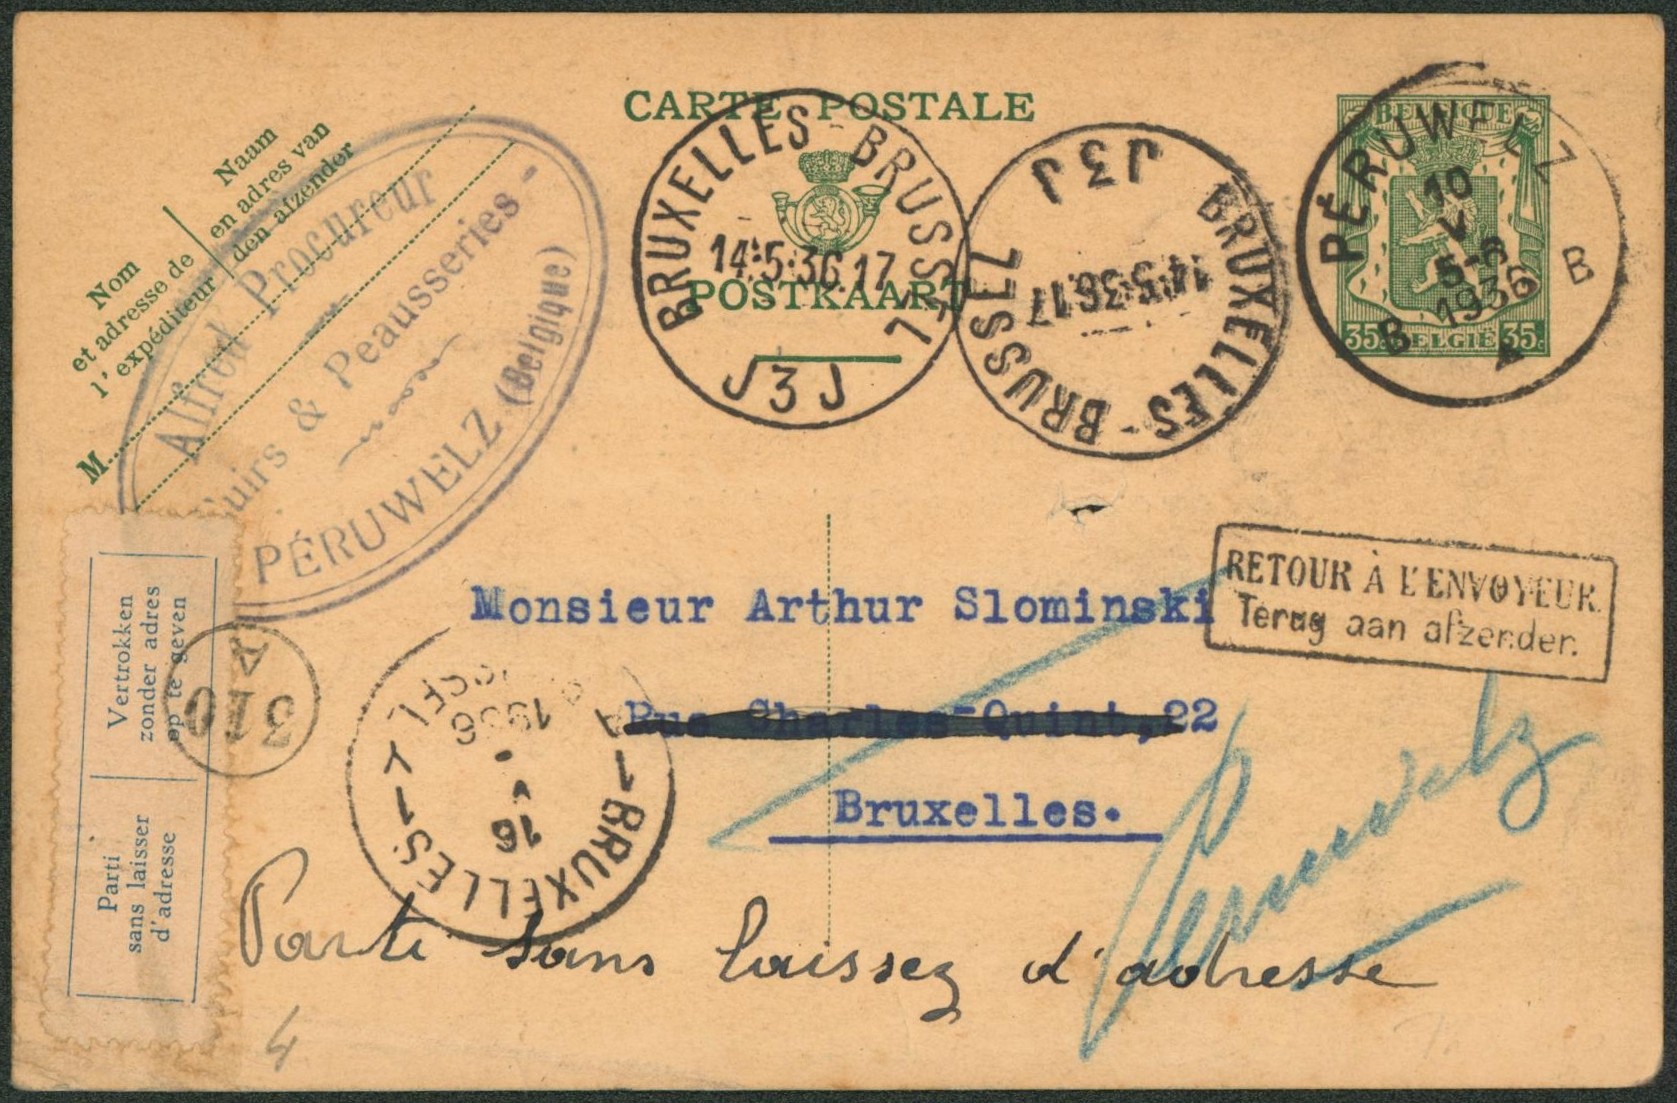 CARTE POSTALE
POSTKAART
BELGIQUE
35c BELGIË 35c
PÉRUWELZ
10
V
5-6
1936
B B
BRUXELLES-BRUSSEL
14.5.36.17
J3J
BRUXELLES-BRUSSEL
14.5.36.17
J3J
Naam
en adres van
den afzender
Nom
et adresse de
l'expéditeur
M.
Alfred Procureur
Cuirs & Peausseries -
PÉRUWELZ (Belgique)
RETOUR À L'ENVOYEUR.
Terug aan afzender.
Monsieur Arthur Slominski
Rue Charles-Quint, 22
Bruxelles.
Peruwelz
Parti sans laissez d'adresse
Vertrokken
zonder adres
op te geven
Parti
sans laisser
d'adresse
310
BRUXELLES
16
V
1936
4